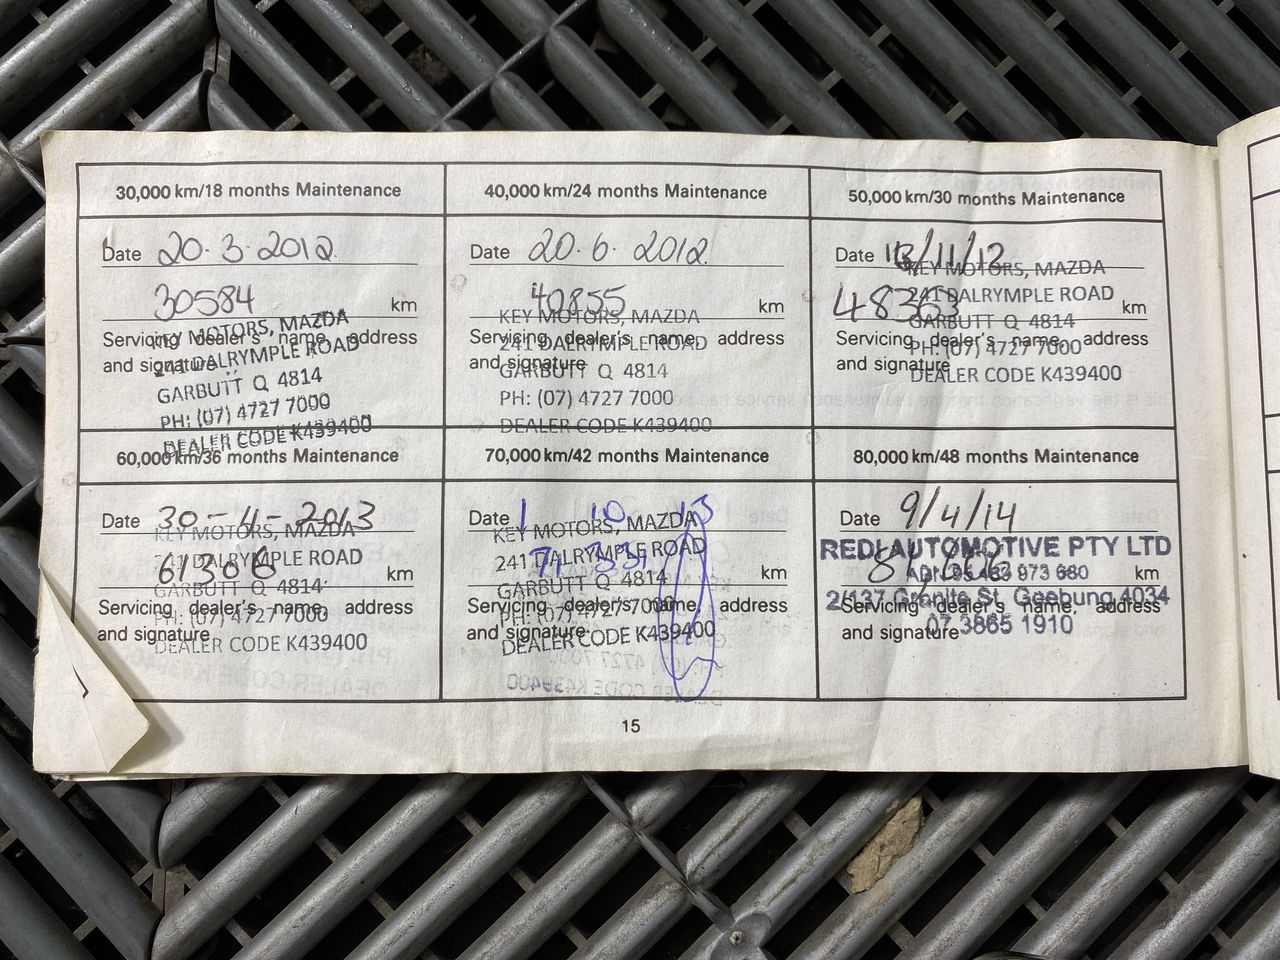 30,000 km/18 months Maintenance
Date 20.3.2012
30584 km
Servicing dealer's name, address
and signature
KEY MOTORS, MAZDA
241 DALRYMPLE ROAD
GARBUTT Q 4814
PH: (07) 4727 7000
DEALER CODE K439400
40,000 km/24 months Maintenance
Date 20.6.2012
40855 km
Servicing dealer's name, address
and signature
KEY MOTORS, MAZDA
241 DALRYMPLE ROAD
GARBUTT Q 4814
PH: (07) 4727 7000
DEALER CODE K439400
50,000 km/30 months Maintenance
Date /11/12
48363 km
Servicing dealer's name, address
and signature
KEY MOTORS, MAZDA
241 DALRYMPLE ROAD
GARBUTT Q 4814
PH: (07) 4727 7000
DEALER CODE K439400
60,000 km/36 months Maintenance
Date 30-4-2013
61306 km
Servicing dealer's name, address
and signature
KEY MOTORS, MAZDA
241 DALRYMPLE ROAD
GARBUTT Q 4814
PH: (07) 4727 7000
DEALER CODE K439400
70,000 km/42 months Maintenance
Date 1 10 13
71 331 km
Servicing dealer's name, address
and signature
KEY MOTORS, MAZDA
241 DALRYMPLE ROAD
GARBUTT Q 4814
PH: (07) 4727 7000
DEALER CODE K439400
80,000 km/48 months Maintenance
Date 9/4/14
km
Servicing dealer's name, address
and signature
REDI AUTOMOTIVE PTY LTD
ABN 973 680
2/137 Granite St, Geebung 4034
07 3865 1910
15